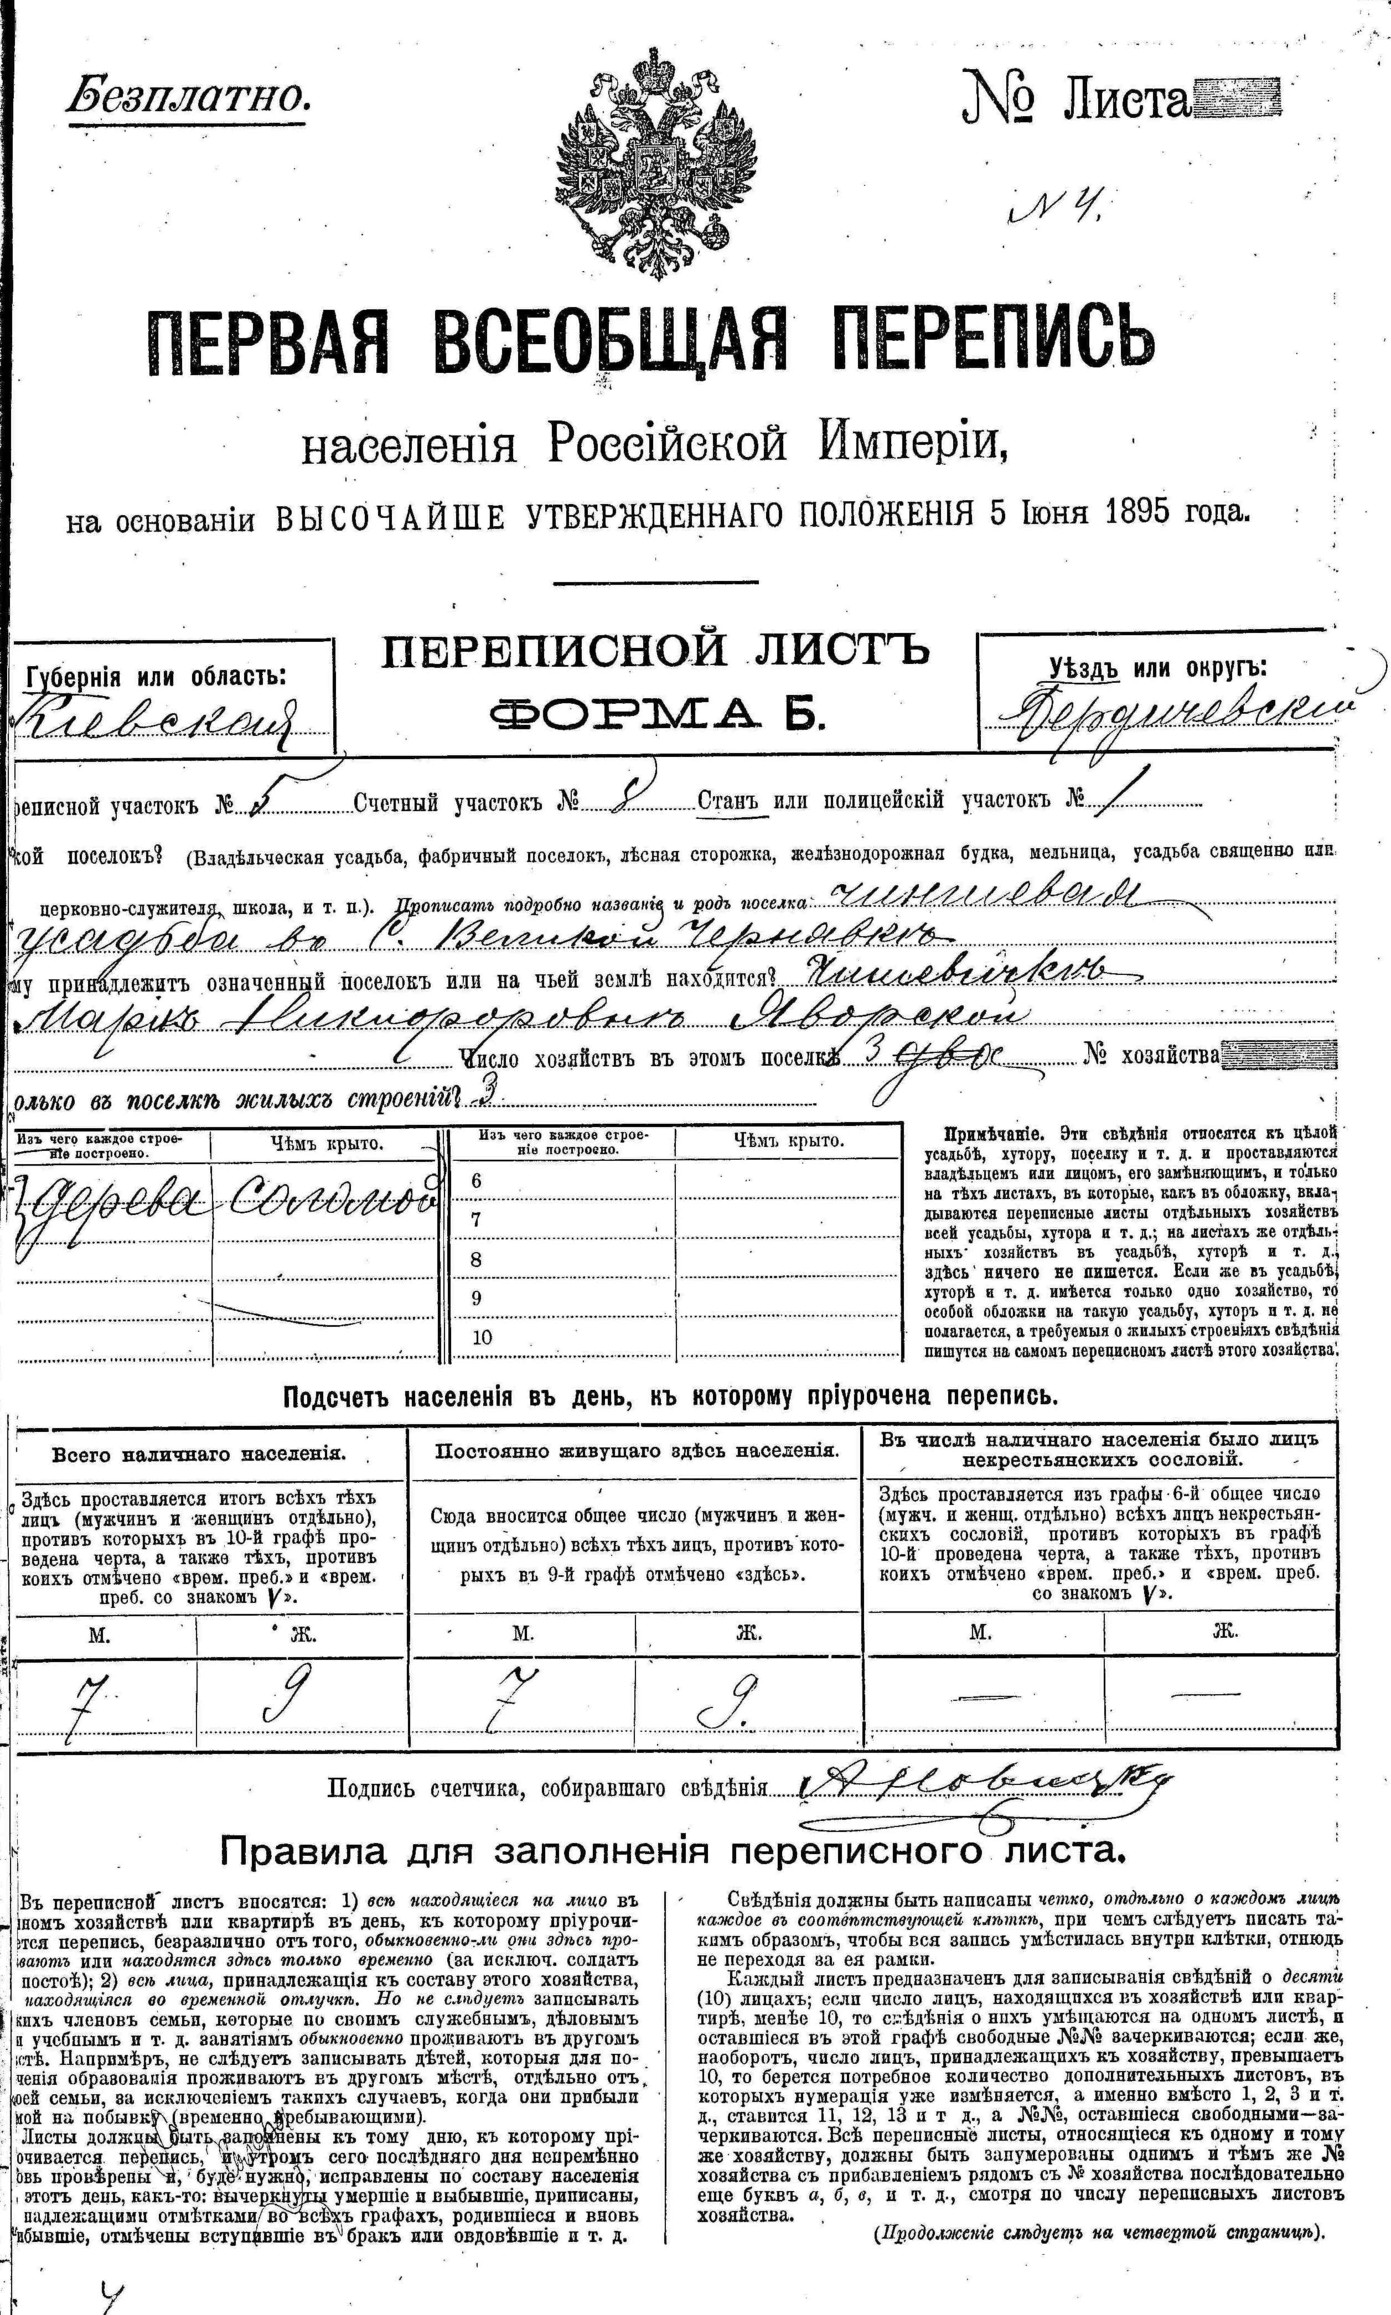 Безплатно.
№ Листа
N 4.
ПЕРВАЯ ВСЕОБЩАЯ ПЕРЕПИСЬ
населенія Россійской Имперіи,
на основаніи ВЫСОЧАЙШЕ УТВЕРЖДЕННАГО ПОЛОЖЕНІЯ 5 Іюня 1895 года.
ПЕРЕПИСНОЙ ЛИСТЪ
ФОРМА Б.
Губернія или область:
Кіевская
Уѣздъ или округъ:
Бердичевскій
реписной участокъ № 5 Счетный участокъ № 8 Станъ или полицейскій участокъ № 1
кой поселокъ? (Владѣльческая усадьба, фабричный поселокъ, лѣсная сторожка, желѣзнодорожная будка, мельница, усадьба священно или
церковно-служителя, школа, и т. п.). Прописать подробно названіе и родъ поселка: чиншевая
усадьба въ с. Великой Чернявкѣ
му принадлежитъ означенный поселокъ или на чьей землѣ находится?
Никифоровнѣ Яворской
Число хозяйствъ въ этомъ поселкѣ 3 два № хозяйства
олько въ поселкѣ жилыхъ строеній? 3
Изъ чего каждое строе-
ніе построено.
Чѣмъ крыто.
Изъ чего каждое строе-
ніе построено.
Чѣмъ крыто.
дерева соломой
6
7
8
9
10
Примѣчаніе. Эти свѣдѣнія относятся къ цѣлой
усадьбѣ, хутору, поселку и т. д. и проставляются
владѣльцемъ или лицомъ, его замѣняющимъ, и только
на тѣхъ листахъ, въ которые, какъ въ обложку, вкла-
дываются переписные листы отдѣльныхъ хозяйствъ
всей усадьбы, хутора и т. д.; на листахъ же отдѣль-
ныхъ хозяйствъ въ усадьбѣ, хуторѣ и т. д.,
здѣсь ничего не пишется. Если же въ усадьбѣ,
хуторѣ и т. д. имѣется только одно хозяйство, то
особой обложки на такую усадьбу, хуторъ и т. д. не
полагается, а требуемыя о жилыхъ строеніяхъ свѣдѣнія
пишутся на самомъ переписномъ листѣ этого хозяйства.
Подсчетъ населенія въ день, къ которому пріурочена перепись.
Всего наличнаго населенія.
Здѣсь проставляется итогъ всѣхъ тѣхъ
лицъ (мужчинъ и женщинъ отдѣльно),
противъ которыхъ въ 10-й графѣ про-
ведена черта, а также тѣхъ, противъ
коихъ отмѣчено «врем. преб.» и «врем.
преб. со знакомъ V».
Постоянно живущаго здѣсь населенія.
Сюда вносится общее число (мужчинъ и жен-
щинъ отдѣльно) всѣхъ тѣхъ лицъ, противъ кото-
рыхъ въ 9-й графѣ отмѣчено «здѣсь».
Въ числѣ наличнаго населенія было лицъ
некрестьянскихъ сословій.
Здѣсь проставляется изъ графы 6-й общее число
(мужч. и женщ. отдѣльно) всѣхъ лицъ некрестьян-
скихъ сословій, противъ которыхъ въ графѣ
10-й проведена черта, а также тѣхъ, противъ
коихъ отмѣчено «врем. преб.» и «врем. преб.
со знакомъ V».
М. Ж. М. Ж. М. Ж.
7 9 7 9. — —
Подпись счетчика, собиравшаго свѣдѣнія
Правила для заполненія переписного листа.
Въ переписной листъ вносятся: 1) всѣ находящіеся на лицо въ
номъ хозяйствѣ или квартирѣ въ день, къ которому пріурочи-
тся перепись, безразлично отъ того, обыкновенно-ли они здѣсь про-
ваютъ или находятся здѣсь только временно (за исключ. солдатъ
постоѣ); 2) всѣ лица, принадлежащія къ составу этого хозяйства,
находящіяся во временной отлучкѣ. Но не слѣдуетъ записывать
кихъ членовъ семьи, которые по своимъ служебнымъ, дѣловымъ
и учебнымъ и т. д. занятіямъ обыкновенно проживаютъ въ другомъ
стѣ. Напримѣръ, не слѣдуетъ записывать дѣтей, которыя для по-
ченія образованія проживаютъ въ другомъ мѣстѣ, отдѣльно отъ
оей семьи, за исключеніемъ такихъ случаевъ, когда они прибыли
мой на побывку (временно пребывающими).
Листы должны быть заполнены къ тому дню, къ которому прі-
очивается перепись, и утромъ сего послѣдняго дня непремѣнно
овь провѣрены и, буде нужно, исправлены по составу населенія
этотъ день, какъ-то: вычеркнуты умершіе и выбывшіе, приписаны,
надлежащими отмѣтками во всѣхъ графахъ, родившіеся и вновь
ибывшіе, отмѣчены вступившіе въ бракъ или овдовѣвшіе и т. д.
Свѣдѣнія должны быть написаны четко, отдѣльно о каждомъ лицѣ
каждое въ соотвѣтствующей клѣткѣ, при чемъ слѣдуетъ писать та-
кимъ образомъ, чтобы вся запись умѣстилась внутри клѣтки, отнюдь
не переходя за ея рамки.
Каждый листъ предназначенъ для записыванія свѣдѣній о десяти
(10) лицахъ; если число лицъ, находящихся въ хозяйствѣ или квар-
тирѣ, менѣе 10, то свѣдѣнія о нихъ умѣщаются на одномъ листѣ, и
оставшіеся въ этой графѣ свободные №№ зачеркиваются; если же,
наоборотъ, число лицъ, принадлежащихъ къ хозяйству, превышаетъ
10, то берется потребное количество дополнительныхъ листовъ, въ
которыхъ нумерація уже измѣняется, а именно вмѣсто 1, 2, 3 и т.
д., ставится 11, 12, 13 и т д., а №№, оставшіеся свободными—за-
черкиваются. Всѣ переписные листы, относящіеся къ одному и тому
же хозяйству, должны быть занумерованы однимъ и тѣмъ же №
хозяйства съ прибавленіемъ рядомъ съ № хозяйства послѣдовательно
еще буквъ а, б, в, и т. д., смотря по числу переписныхъ листовъ
хозяйства.
(Продолженіе слѣдуетъ на четвертой страницѣ).